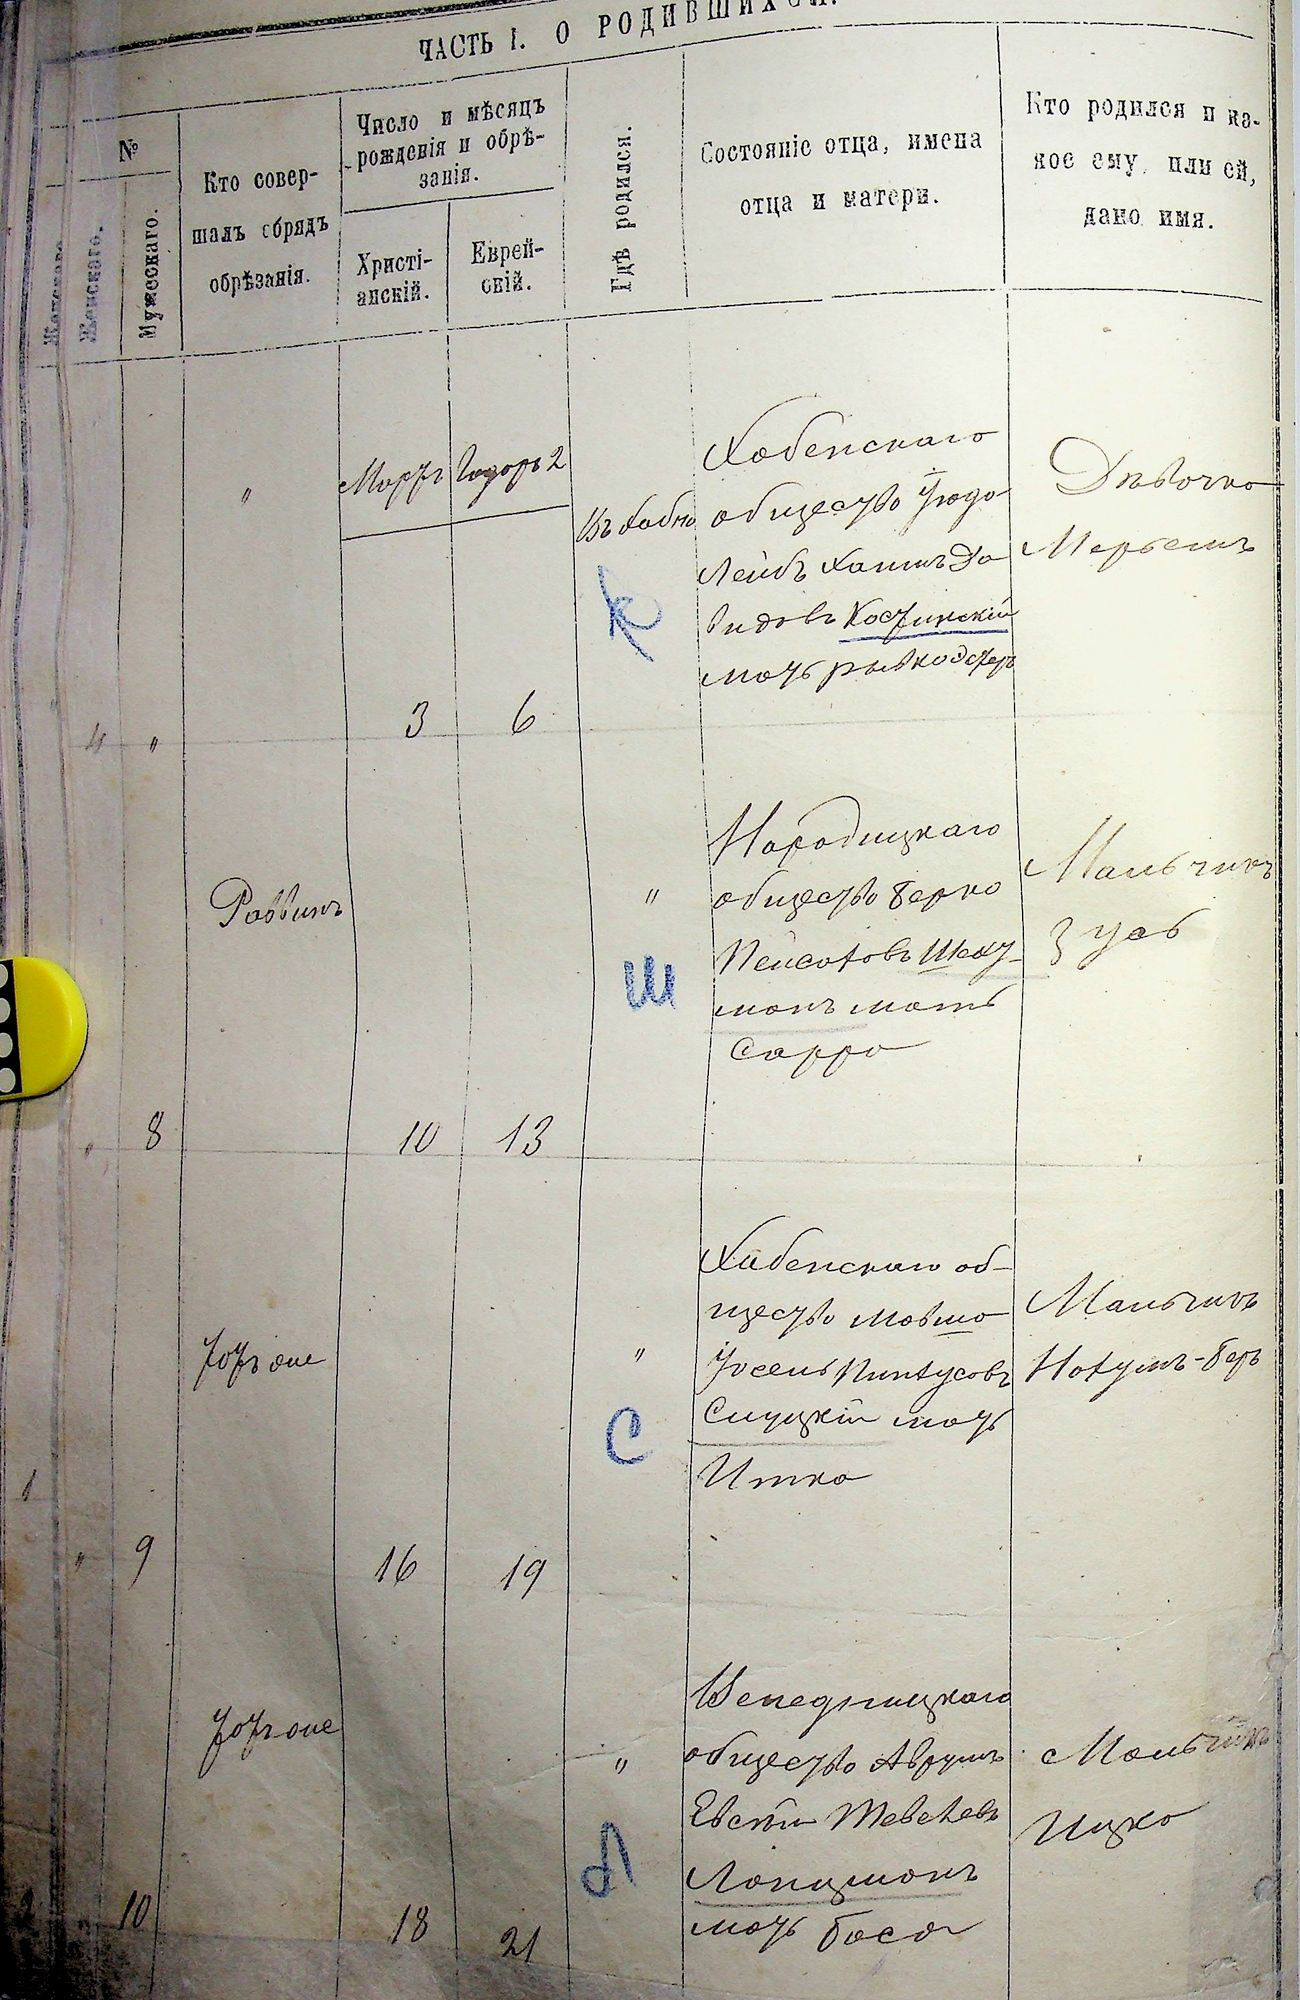 ЧАСТЬ I. О РОДИВШИХСЯ.
№
Женскаго.
Женскаго.
Мужескаго.
Кто совер-
шалъ обрядъ
обрѣзанія.
Число и мѣсяцъ
рожденія и обрѣ-
занія.
Христі-
анскій.
Еврей-
скій.
Гдѣ родился.
Состояніе отца, имена
отца и матери.
Кто родился и ка-
кое ему, или ей,
дано имя.
4
"
"
Мартъ
3
2
6
Въ Хабно
К
Хабенскаго
общества Іудо
Лейбъ Хаимъ Да
видовъ Костинскій
мать Рывка Эстеръ
Дѣвочка
Меръемъ
"
8
Раввинъ
10
13
"
Ш
Народицкаго
общества Берко
Пейсаховъ Шехт
манъ мать
Сарра
Мальчикъ
Зусь
"
9
Тотъ же
16
19
"
С
Хабенскаго об-
щества Мовшо
Іосель Пинхусовъ
Слуцкій мать
Итка
Мальчикъ
Нахумъ-Беръ
10
Тотъ же
18
21
"
Л
общества Аврумъ
Евсѣй Тевелевъ
Лопцманъ
мать Бася
Мальчикъ
Ицко